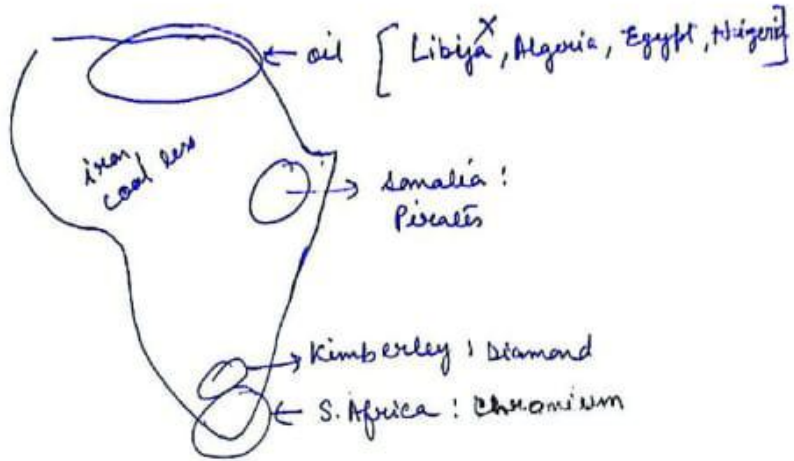 ← oil [Libija, Algeria, Egypt, Nigeria]
iron
coal less
→ Somalia :
Pirates
→ Kimberley : Diamond
← S. Africa : Chromium